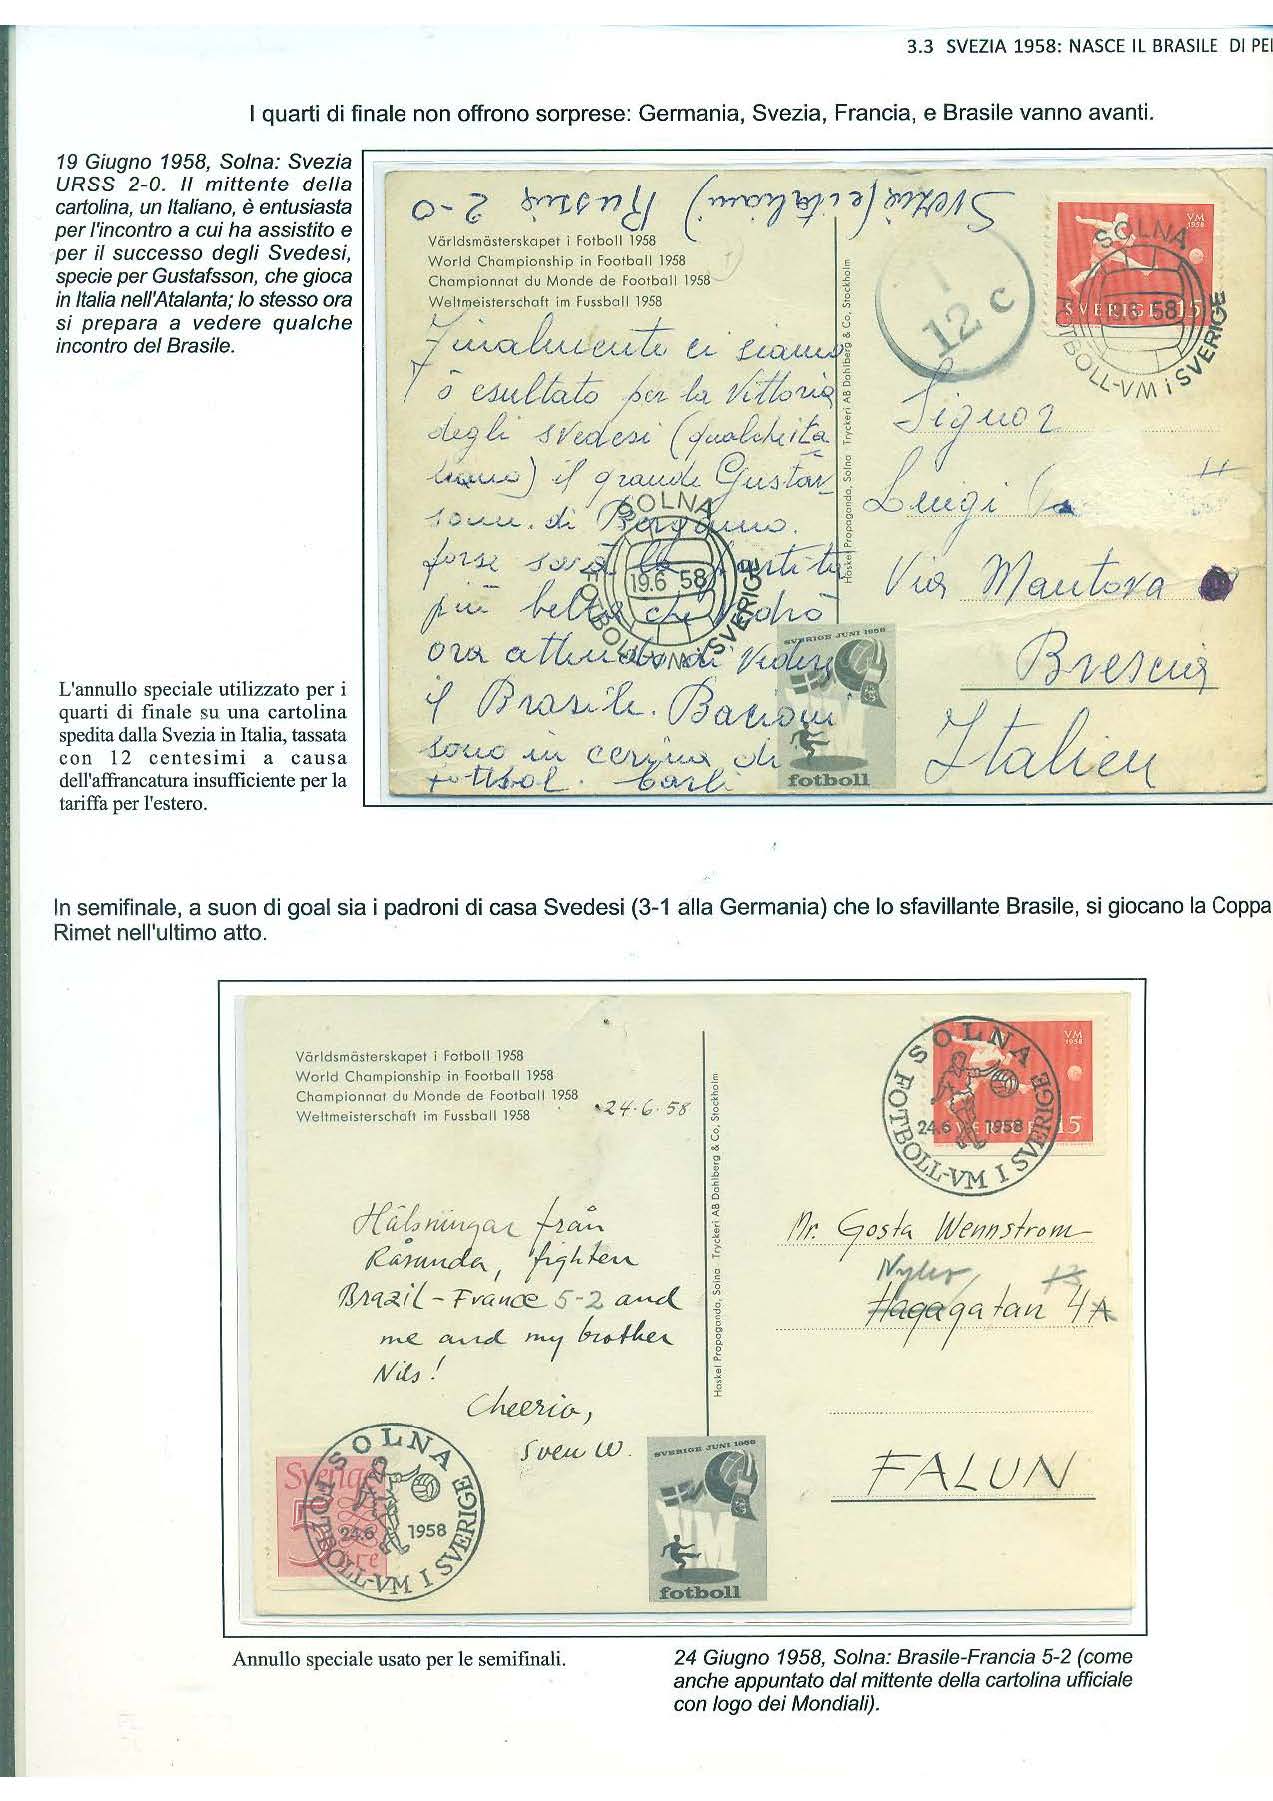 3.3 SVEZIA 1958: NASCE IL BRASILE DI PEL
I quarti di finale non offrono sorprese: Germania, Svezia, Francia, e Brasile vanno avanti.
19 Giugno 1958, Solna: Svezia
URSS 2-0. Il mittente della
cartolina, un Italiano, è entusiasta
per l'incontro a cui ha assistito e
per il successo degli Svedesi,
specie per Gustafsson, che gioca
in Italia nell'Atalanta; lo stesso ora
si prepara a vedere qualche
incontro del Brasile.
L'annullo speciale utilizzato per i
quarti di finale su una cartolina
spedita dalla Svezia in Italia, tassata
con 12 centesimi a causa
dell'affrancatura insufficiente per la
tariffa per l'estero.
Svezia (e italiani) Russia 2-0
Världsmästerskapet i Fotboll 1958
World Championship in Football 1958
Championnat du Monde de Football 1958
Weltmeisterschaft im Fussball 1958
Finalmente ci siamo
esultato per la Vittoria
degli svedesi (qualche ita
liano) il grande Gustav
sonn. di Bergamo.
forse sarà la partita
più bella che vedrò
ora attendo di vedere
il Brasile. Bacioni
sono in cerima di
fotbol. Carli
Haskel Propaganda, Solna Tryckeri AB Dahlberg & Co, Stockholm
T
12 c
VM
1958
SVERIGE 15
SOLNA
19.6 58
FOTBOLL-VM i SVERIGE
SOLNA
19.6 58
FOTBOLL-VM i SVERIGE
Signor
Luigi
Via Mantova
Brescia
Italien
SVERIGE JUNI 1958
VM
fotboll
In semifinale, a suon di goal sia i padroni di casa Svedesi (3-1 alla Germania) che lo sfavillante Brasile, si giocano la Coppa
Rimet nell'ultimo atto.
Världsmästerskapet i Fotboll 1958
World Championship in Football 1958
Championnat du Monde de Football 1958
Weltmeisterschaft im Fussball 1958
24.6.58
Hälsningar från
Råsunda, fighten
Brazil - France 5-2 and
me and my brother
Nils!
Cheerio,
Sven W.
Haskel Propaganda, Solna Tryckeri AB Dahlberg & Co, Stockholm
VM
1958
15
SOLNA
24.6 1958
FOTBOLL-VM I SVERIGE
Mr. Gosta Wennstrom
Hagagatan 4A
13
FALUN
Sverige
5 öre
SOLNA
24.6 1958
FOTBOLL-VM I SVERIGE
SVERIGE JUNI 1958
VM
fotboll
Annullo speciale usato per le semifinali.
24 Giugno 1958, Solna: Brasile-Francia 5-2 (come
anche appuntato dal mittente della cartolina ufficiale
con logo dei Mondiali).